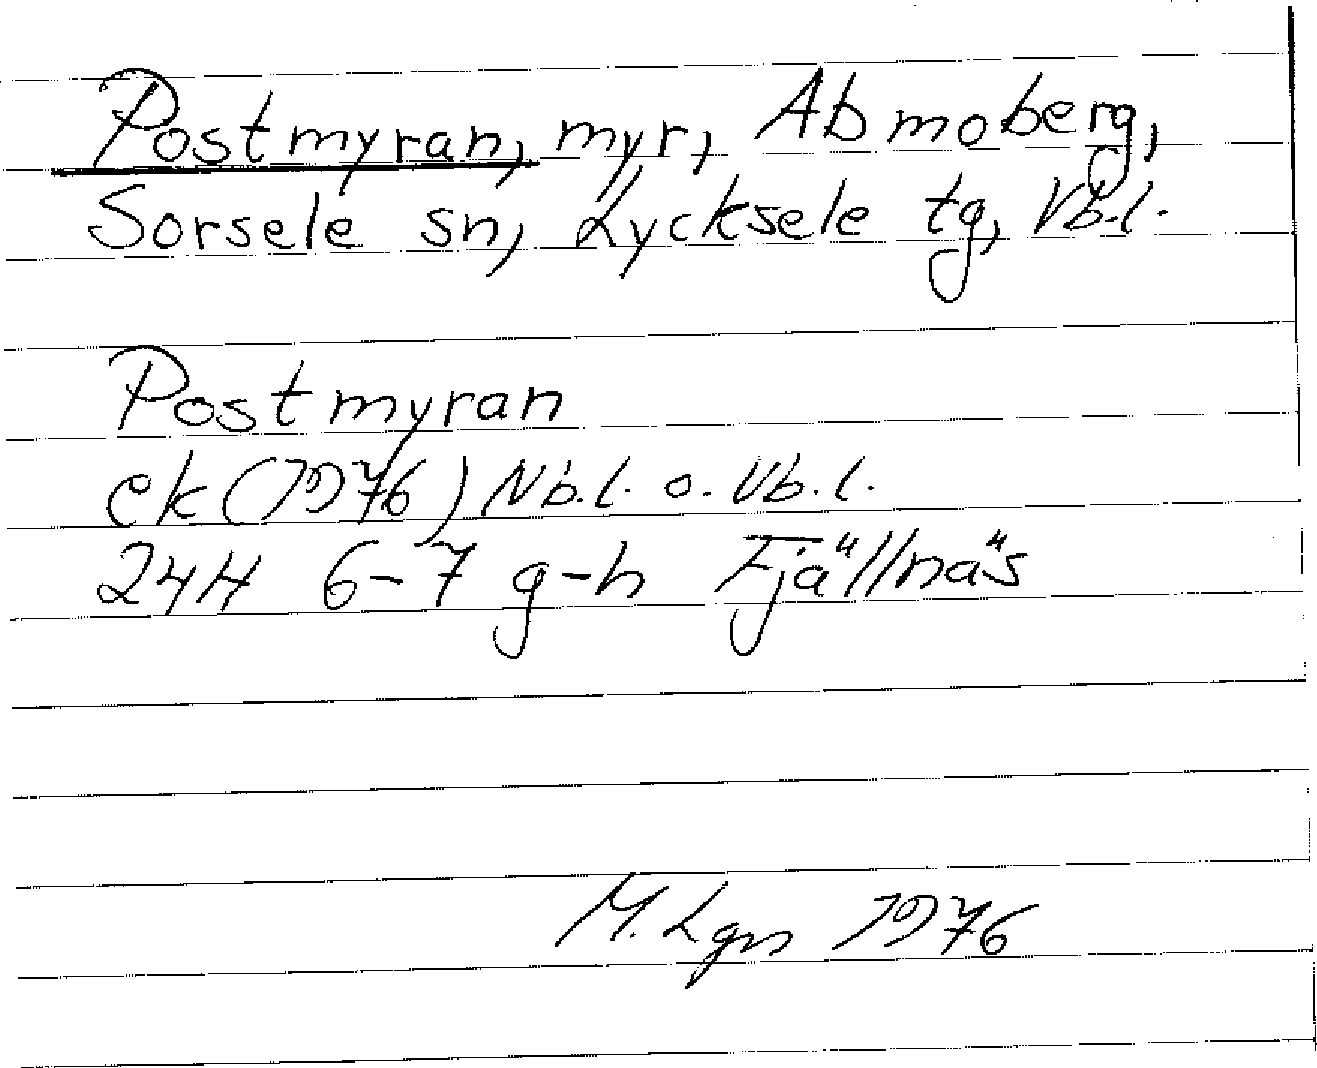 Postmyran, myr, Abmoberg,
Sorsele sn, Lycksele tg, Vb.l.
Postmyran
ek (1976) Nb.l. o. Vb.l.
24H 6-7 g-h Fjällnäs
M. Lgn 1976